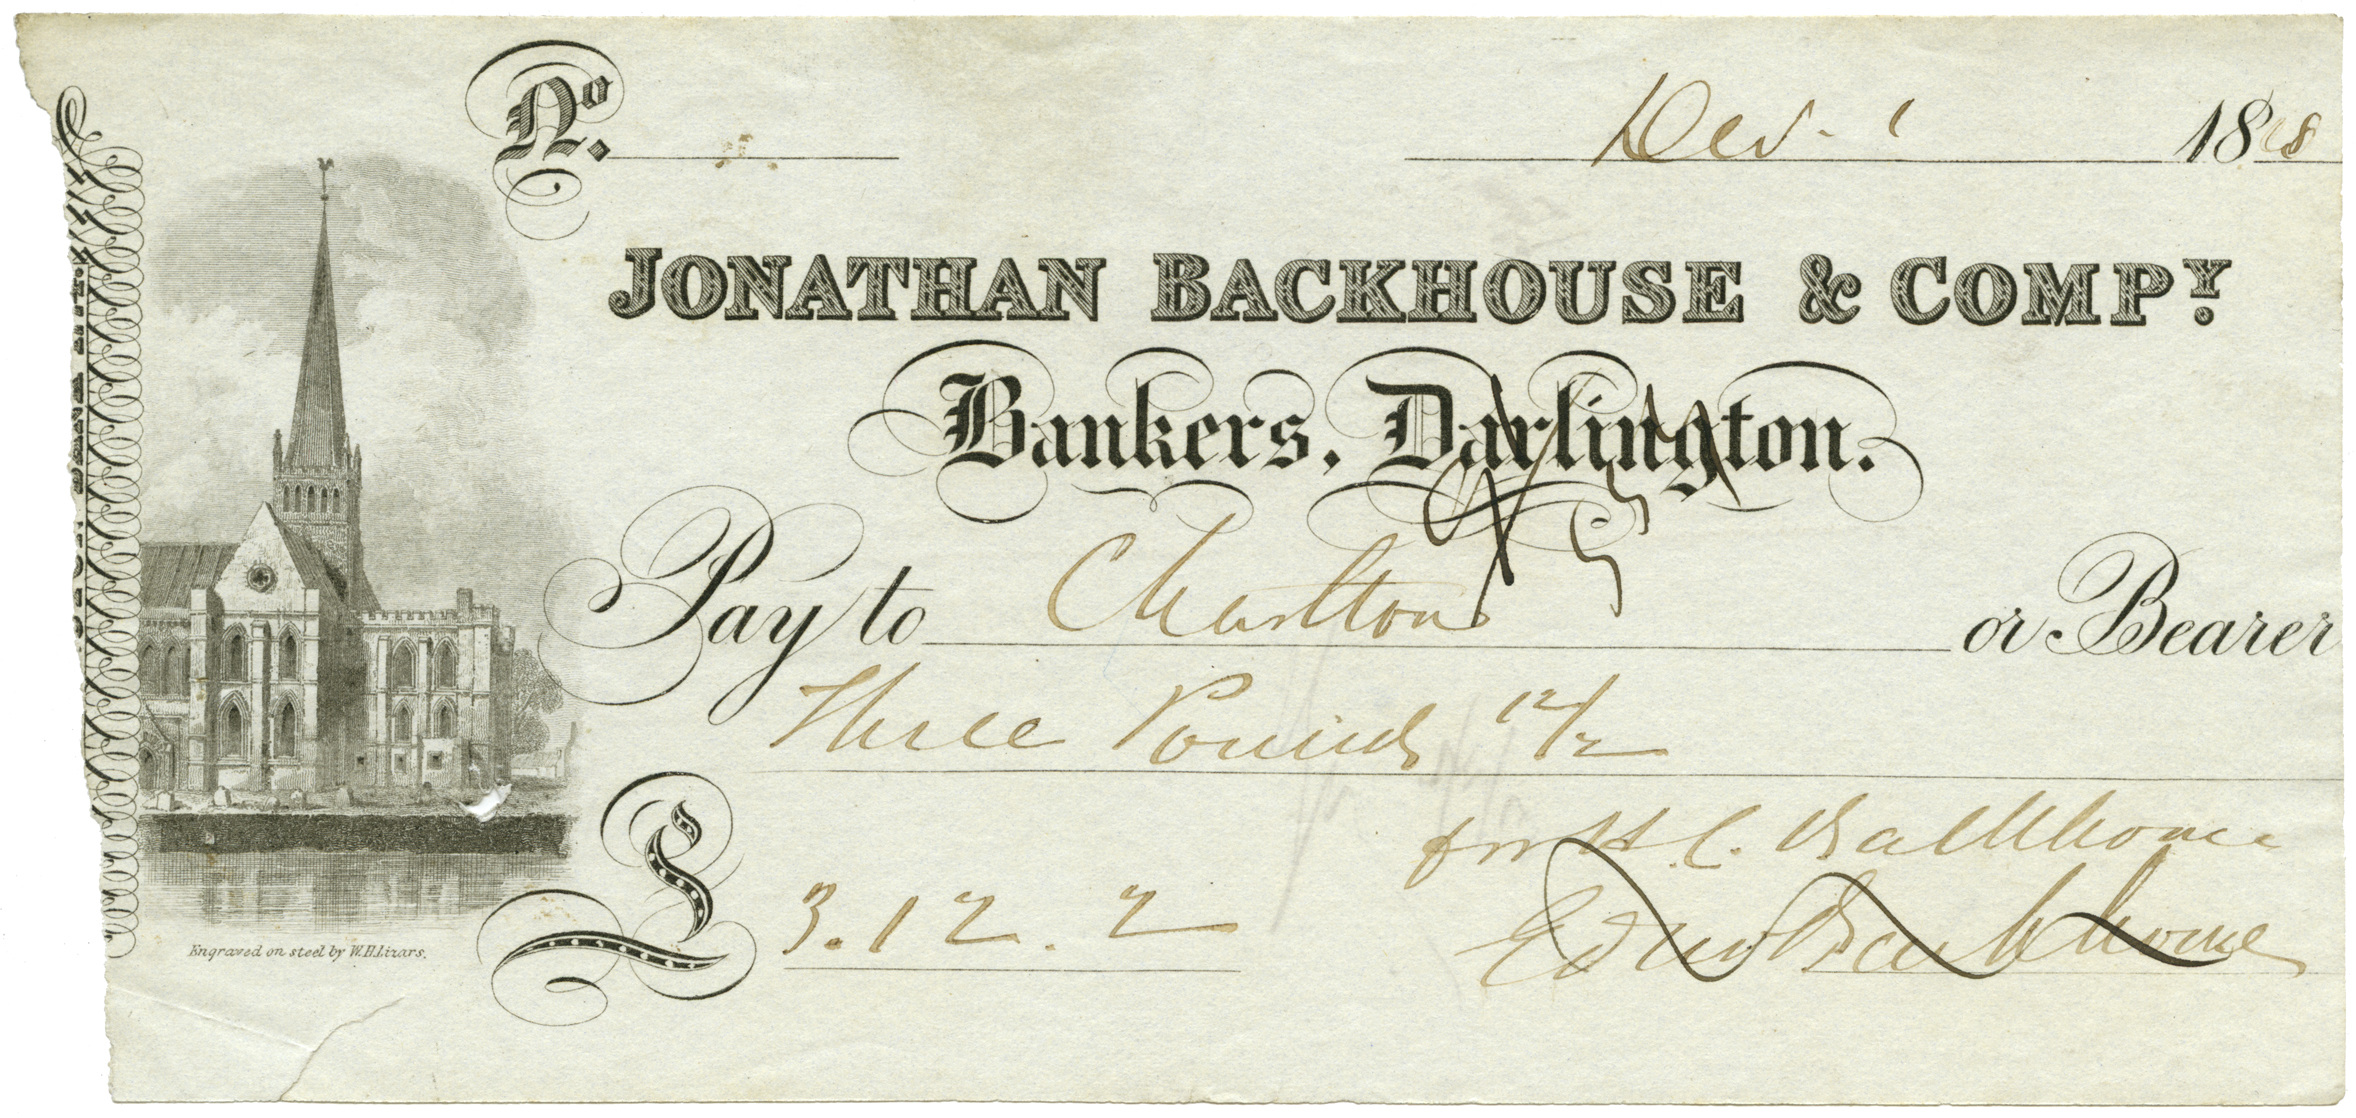 No. Dec. 1 18
JONATHAN BACKHOUSE & COMPY.
Bankers, Darlington.
Pay to Charltons or Bearer
Three Pounds 12/2
£ 3.12.2
for H. C. Backhouse
Edwd Backhouse
Engraved on steel by W.H. Lizars.